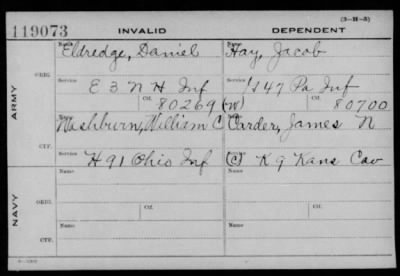 (3-H-3)
119073 INVALID DEPENDENT
Name Name
Eldredge, Daniel Hay, Jacob
ORIG.
Service Service
E 3 N H Inf I 147 Pa Inf
Ctf. Ctf.
80269 (W) 80700
ARMY
Washburn, William C Carder, James N
CTF.
Service Service
H 91 Ohio Inf (C) K 9 Kans Cav
Name Name
ORIG.
Ctf. Ctf.
NAVY
Name Name
CTF.